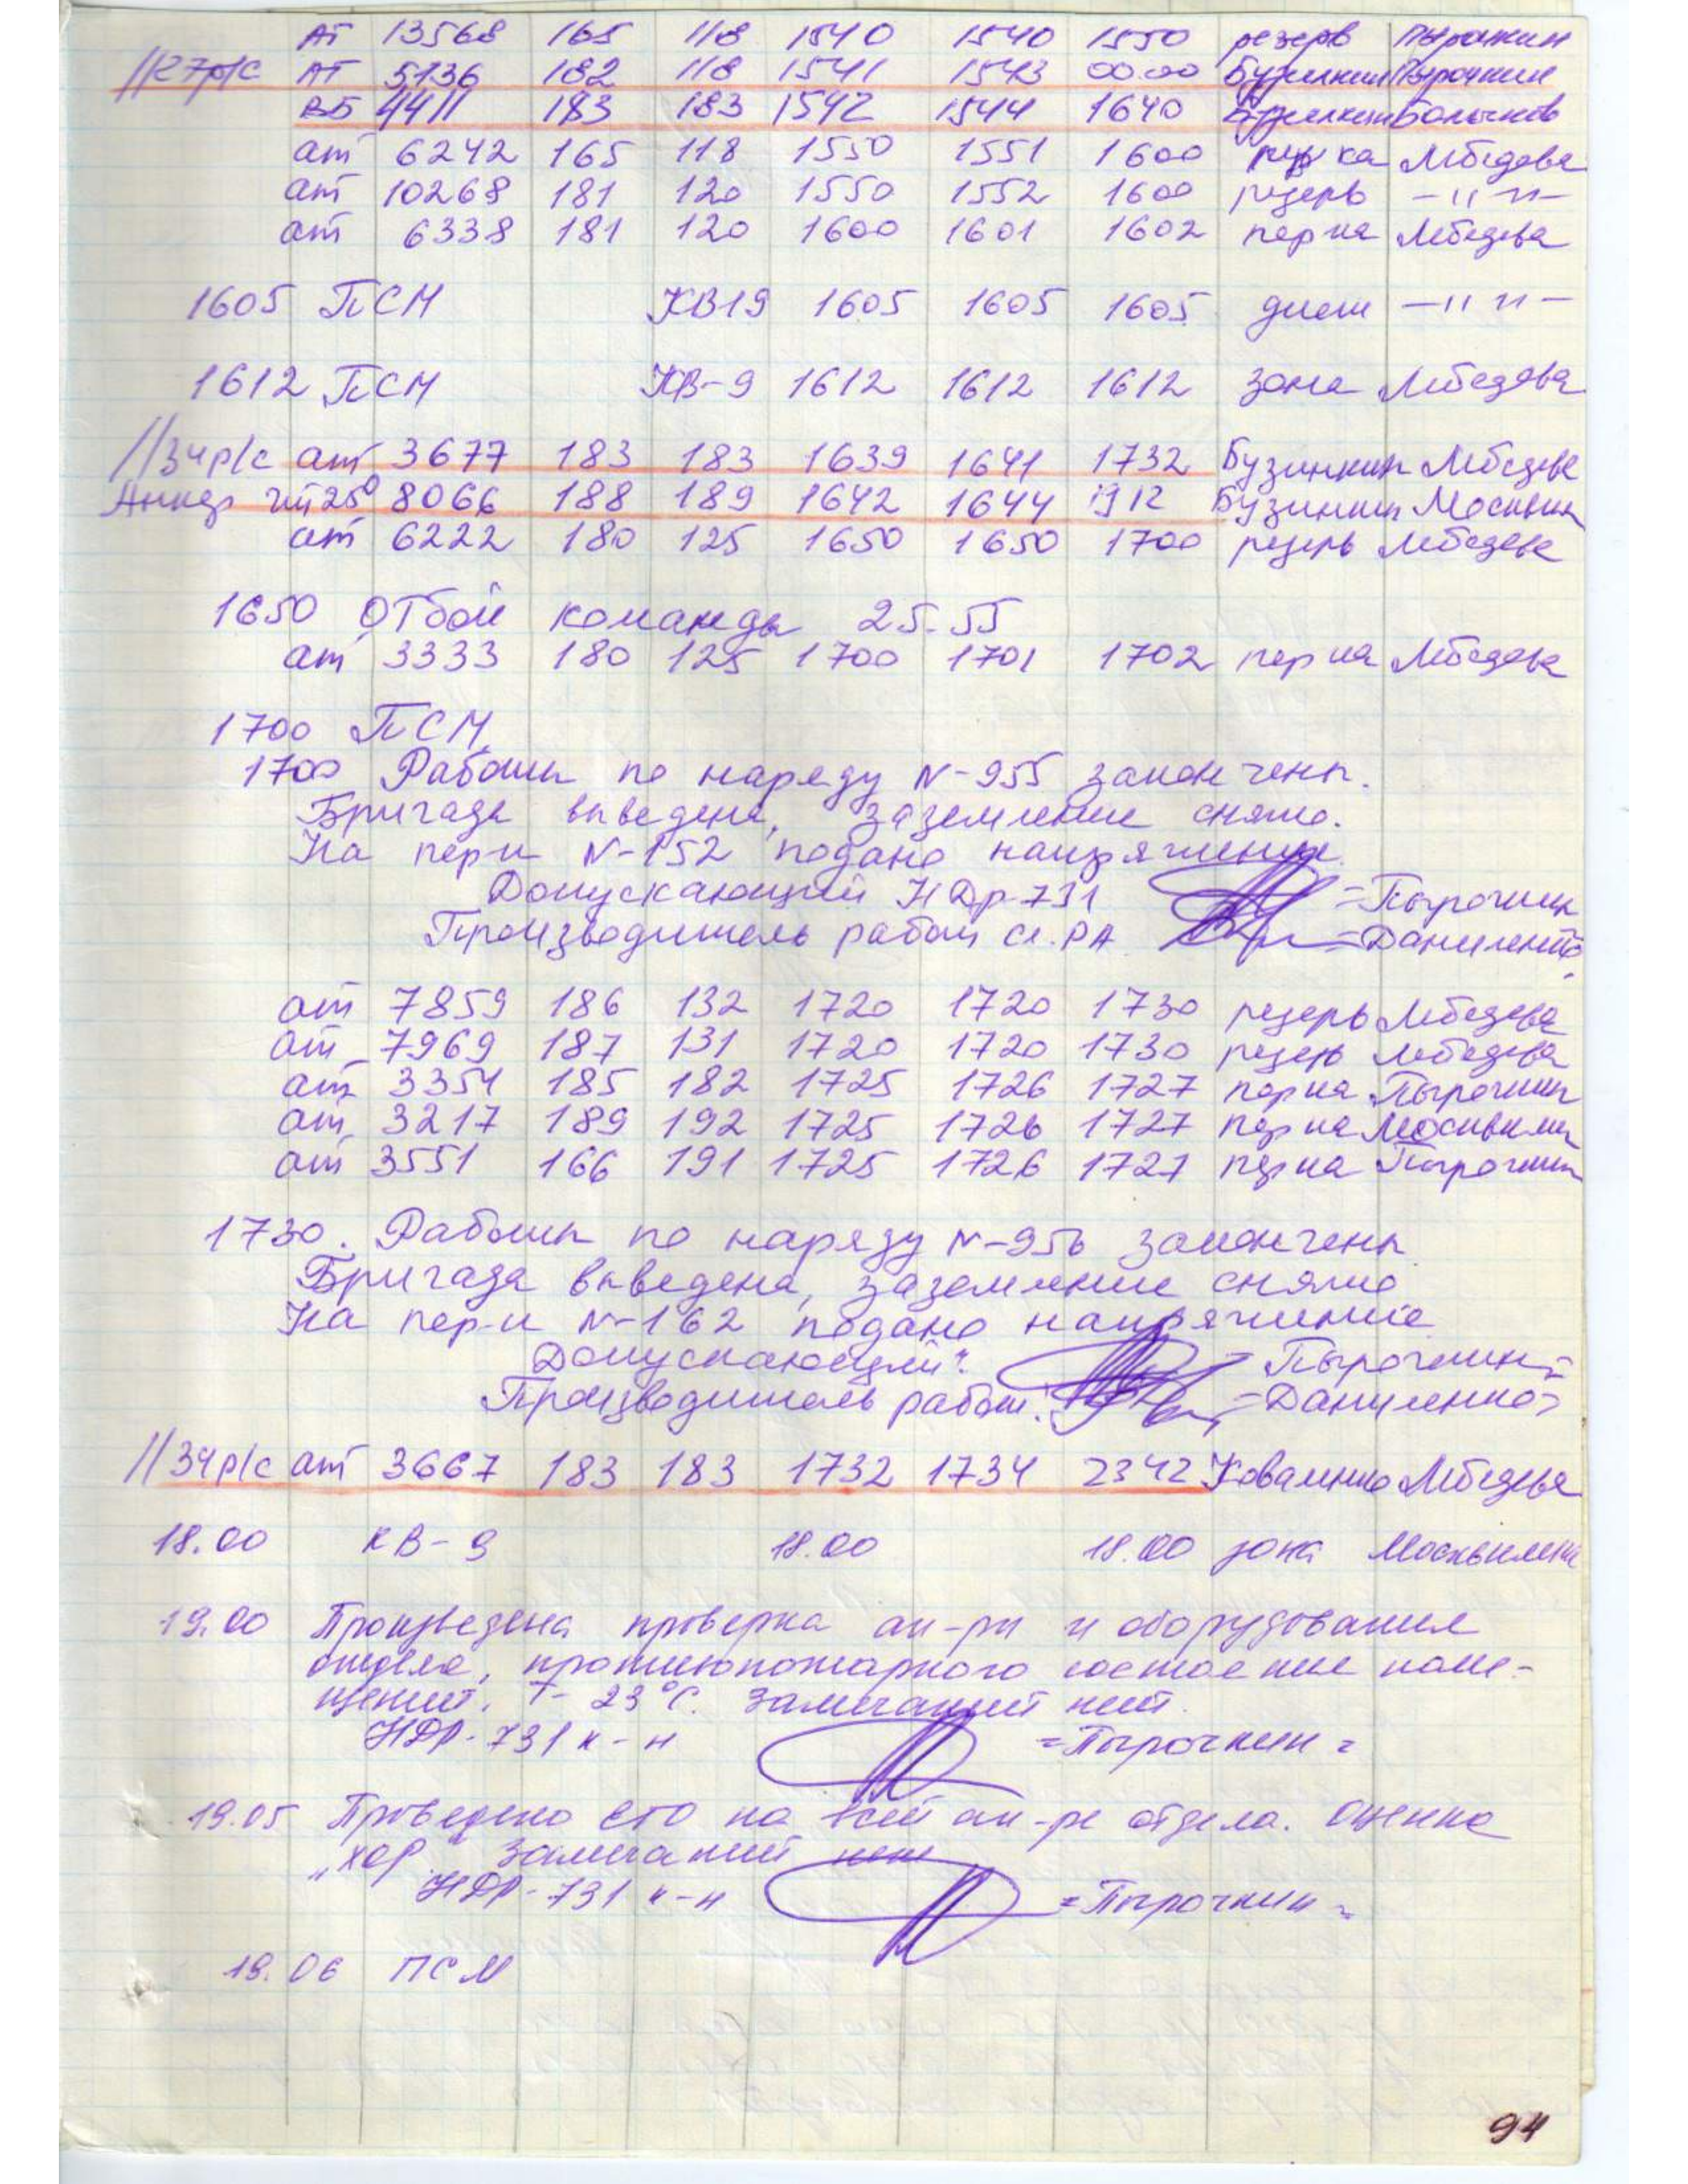 АТ 13568 165 118 1540 1540 1550 резерв Пырочкин
//К27р/с АТ 5136 182 118 1541 1543 00.00 Бузинкин Пырочкин
ВБ 4411 183 183 1542 1544 1640 Бузинкин
ат 6242 165 118 1550 1551 1600 Лебедева
ат 10268 181 120 1550 1552 1600 резерв —〃—
ат 6338 181 120 1600 1601 1602 пер на Лебедева
1605 ПСМ КВ19 1605 1605 1605 —〃—
1612 ПСМ КВ-9 1612 1612 1612 зона Лебедева
//34р/с ат 3677 183 183 1639 1641 1732 Бузинкин Лебедева
8066 188 189 1642 1644 1912 Бузинкин Москвин
ат 6222 180 125 1650 1650 1700 резерв Лебедева
1650 Отбой команды 25-55
ат 3333 180 125 1700 1701 1702 пер на Лебедева
1700 ПСМ
1700 Работы по наряду N-955 закончены.
Бригада выведена, заземление снято.
На пер-к N-152 подано напряжение.
Допускающий НДр-731 =Пырочкин
Производитель работ ст. РА =Даниленко
ат 7859 186 132 1720 1720 1730 резерв Лебедева
ат 7969 187 131 1720 1720 1730 резерв Лебедева
ат 3354 185 182 1725 1726 1727 пер на Пырочкин
ат 3217 189 192 1725 1726 1727 пер на Москвин
ат 3551 166 191 1725 1726 1727 пер на Пырочкин
1730. Работы по наряду N-956 закончены
Бригада выведена, заземление снято
На пер-к N-162 подано напряжение
Допускающий: = Пырочкин=
Производитель работ: =Даниленко=
//34р/с ат 3667 183 183 1732 1734 2342 Коваленко Лебедева
18.00 КВ-9 18.00 18.00 зона
19.00 Произведена проверка ап-ры и оборудования
отдела, противопожарного состояние поме-
щений. Т- 23°С. Замечаний нет.
НДР-731 к-н =Пырочкин=
19.05 Проведено ЕТО на всей ап-ре отдела. Оценка
„хор" Замечаний нет
НДР-731 к-н =Пырочкин=
19.06 ПСМ
94